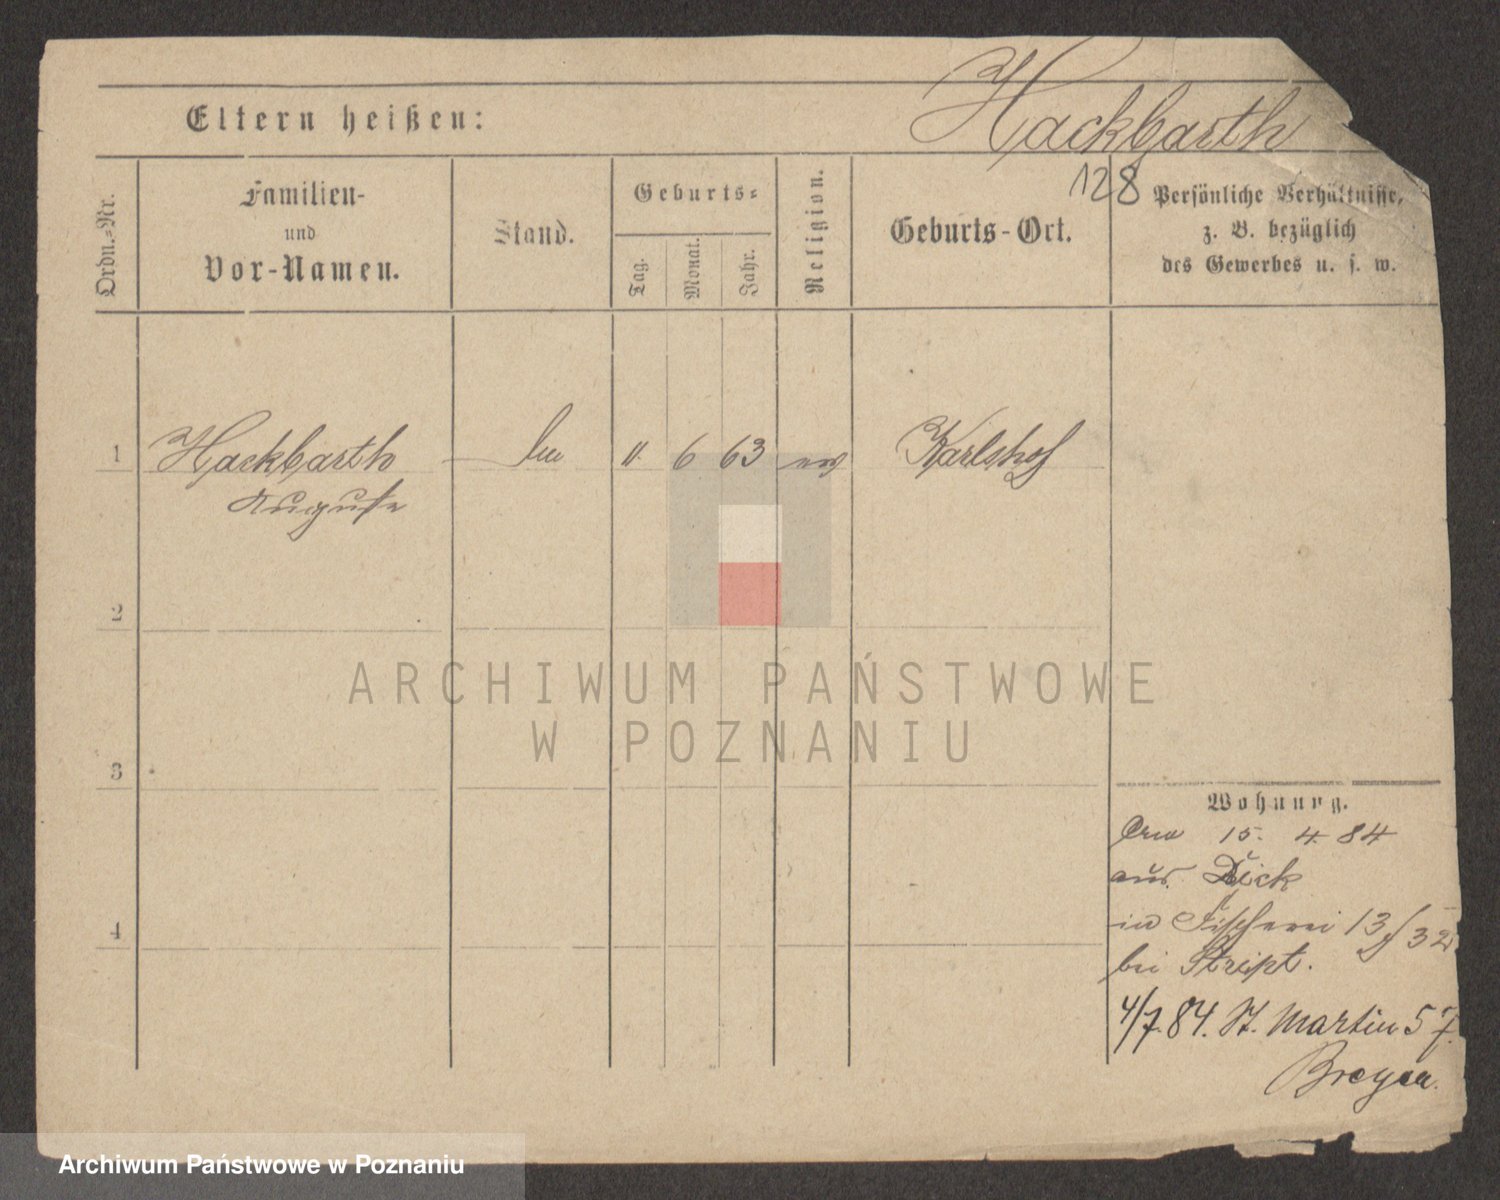 Eltern heißen:
Hackbarth
128
Ordn.-Nr.
Familien-
und
Vor-Namen.
Stand.
Geburts-
Tag.
Monat.
Jahr.
Religion.
Geburts-Ort.
Persönliche Verhältnisse,
z. B. bezüglich
des Gewerbes u. s. w.
1 Hackbarth 11. 6 63 ev Karlshof
Auguste
2
3
4
Wohnung.
15. 4. 84
aus
in Fischerei 13
bei
4/7. 84. St. Martin 57.
ARCHIWUM PAŃSTWOWE
W POZNANIU
Archiwum Państwowe w Poznaniu